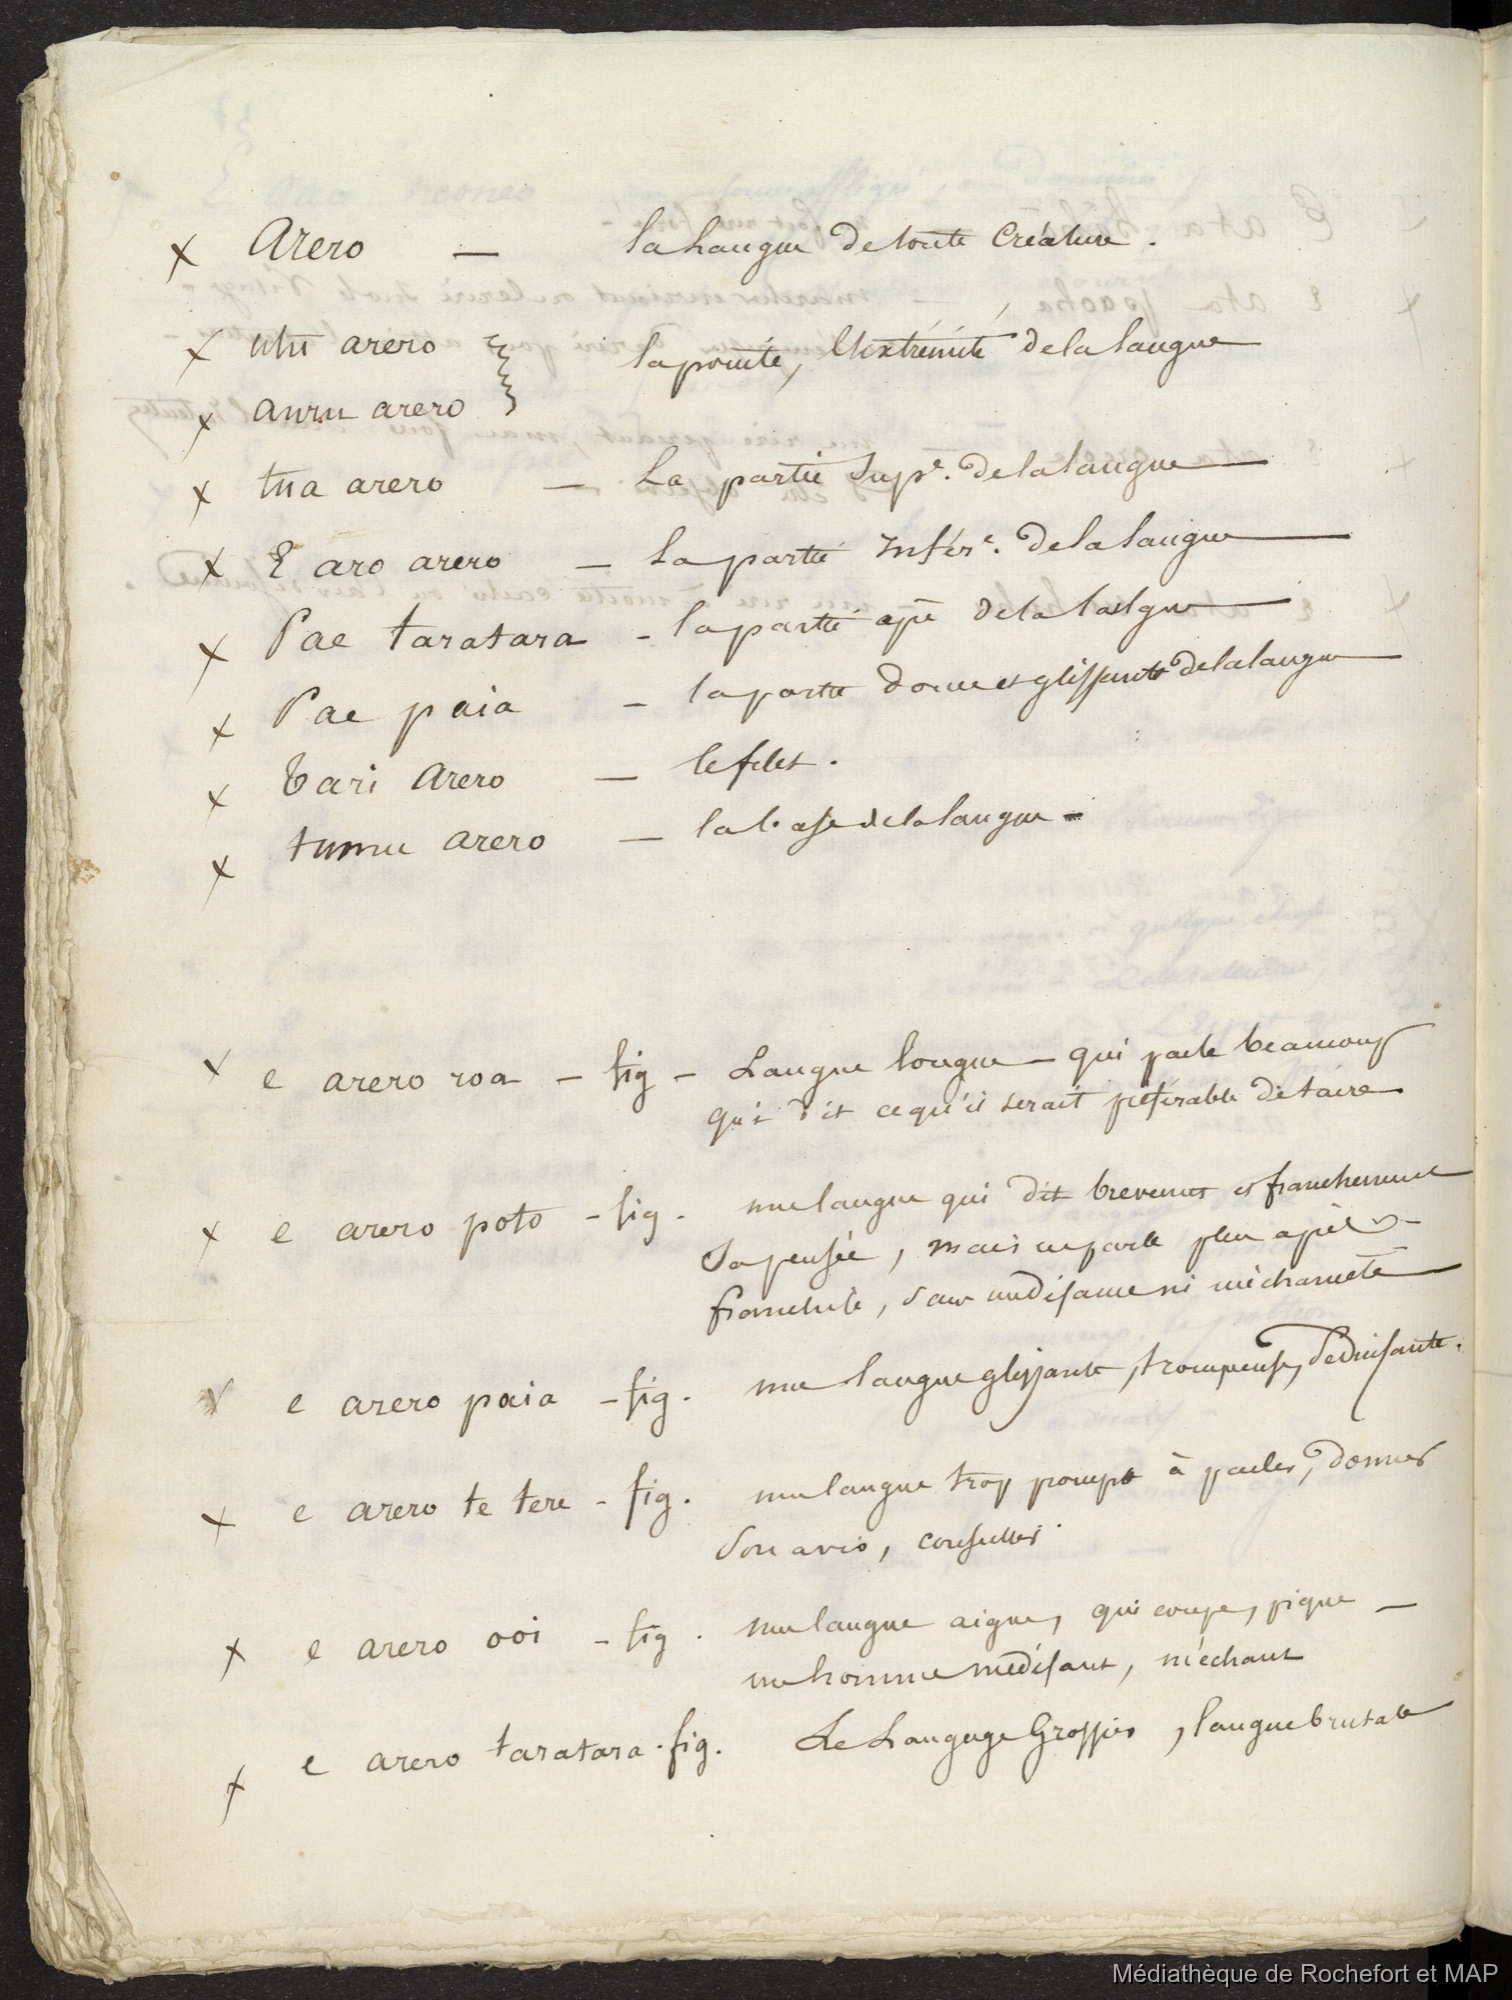 x Arero — la Langue de toute Créature.
x utu arero } la pointe, l'extrémité de la langue
x auru arero
x tua arero — La partie Supre. de la langue
x E aro arero — la partie Infére. de la langue
x Pae taratara - la partie apre de la langue
x Pae paia - la partie douce et glissante de la langue
x Tari Arero — le filet.
x tumu arero — la base de la langue -
x e arero roa - fig - Langue longue - qui parle beaucoup
qui dit ce qu'il serait préférable de taire
x e arero poto - fig. une langue qui dit brevement et franchement
Sa pensée, mais ne parle plus après -
franchise, sans médisance ni méchanceté
x e arero paia - fig. une langue glissante, trompeuse, séduisante.
x e arero te tere - fig. une langue trop prompte à parler, donner
Son avis, conseiller.
x e arero ooi - fig. une langue aigue, qui coupe, pique -
un homme médisant, méchant
x e arero taratara. fig. Le Langage Grossier, langue brutale
Médiathèque de Rochefort et MAP